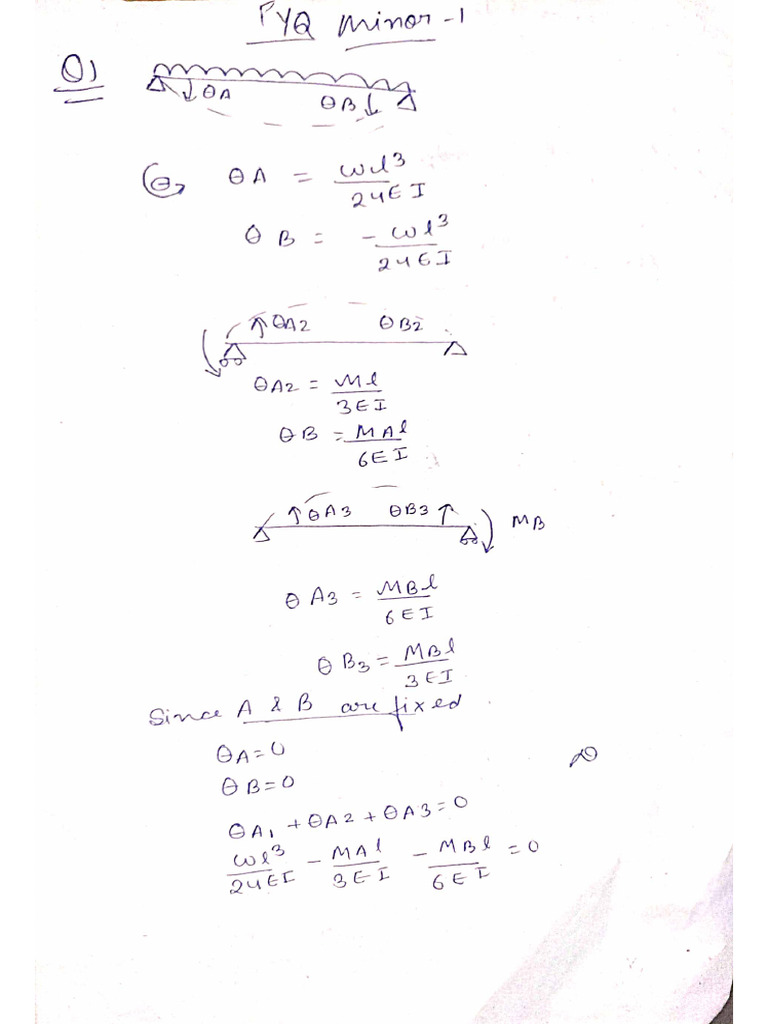 PYQ Minor-1
Q1
θA
θB
θA = wl³/24EI
θB = -wl³/24EI
θA2 θB2
θA2 = Ml/3EI
θB = MAl/6EI
θA3 θB3 MB
θA3 = MBl/6EI
θB3 = MBl/3EI
Since A & B are fixed
θA=0
θB=0
θA1 + θA2 + θA3 = 0
wl³/24EI - MAl/3EI - MBl/6EI = 0